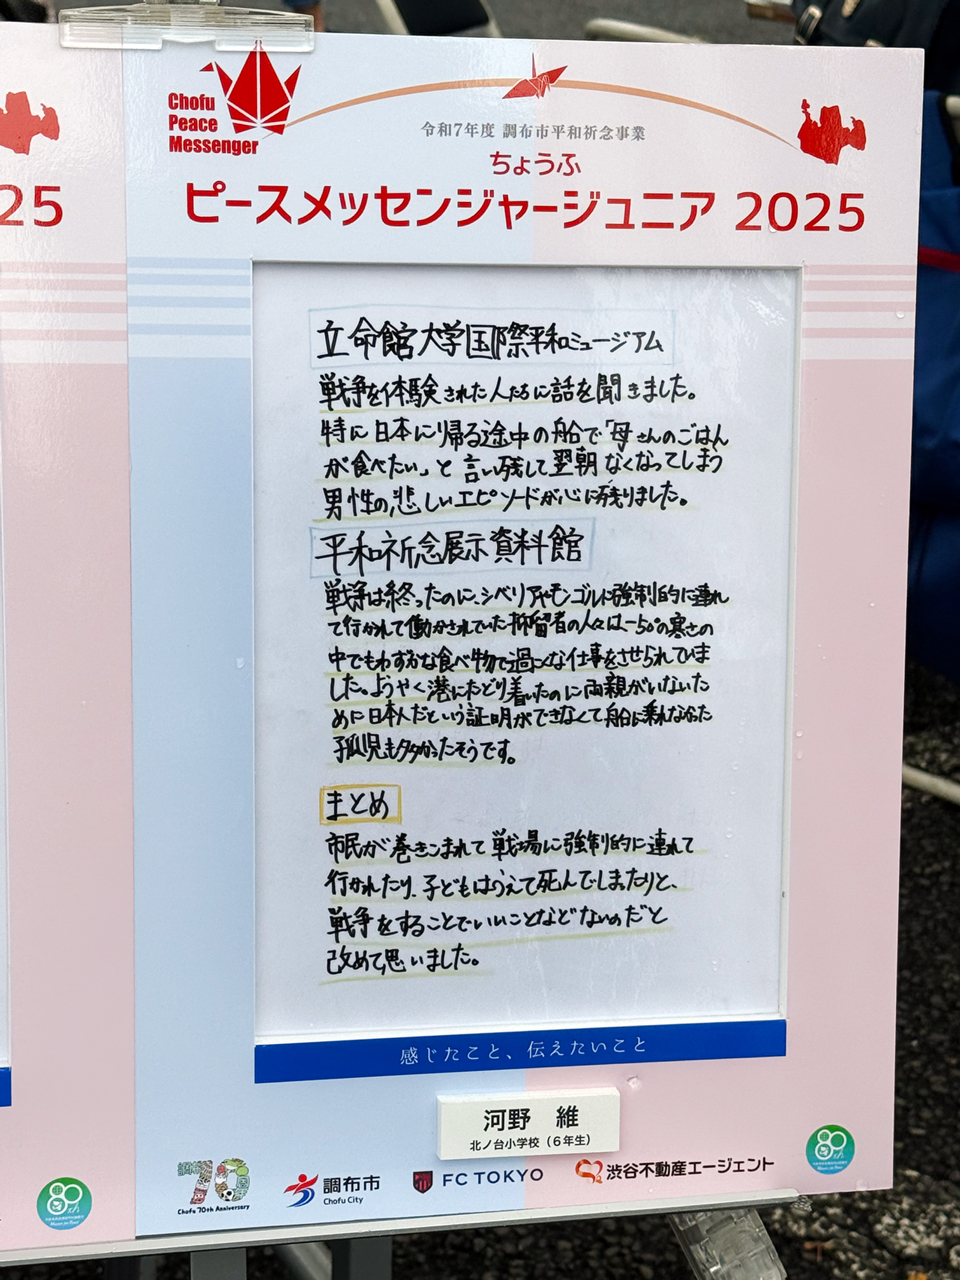 Chofu
Peace
Messenger
令和7年度 調布市平和祈念事業
ちょうふ
ピースメッセンジャージュニア 2025
25
立命館大学国際平和ミュージアム
戦争を体験された人たちに話を聞きました。
特に日本に帰る途中の船で「母さんのごはん
が食べたい」と言い残して翌朝なくなってしまう
男性の悲しいエピソードが心に残りました。
平和祈念展示資料館
戦争は終ったのに、シベリアやモンゴルに強制的に連れ
て行かれて働かされていた抑留者の人々は、-50°の寒さの
中でもわずかな食べ物で過こくな仕事をさせられていま
した。ようやく港にたどり着いたのに両親がいないた
めに日本人だという証明ができなくて船に乗れなかった
孤児も多かったそうです。
まとめ
市民が巻きこまれて戦場に強制的に連れて
行かれたり、子どもはうえて死んでしまったりと、
戦争をすることでいいことなどないのだと
改めて思いました。
感じたこと、伝えたいこと
河野 維
北ノ台小学校（6年生）
調布市
70
Chofu 70th Anniversary
調布市
Chofu City
FC TOKYO
渋谷不動産エージェント
80th
80th